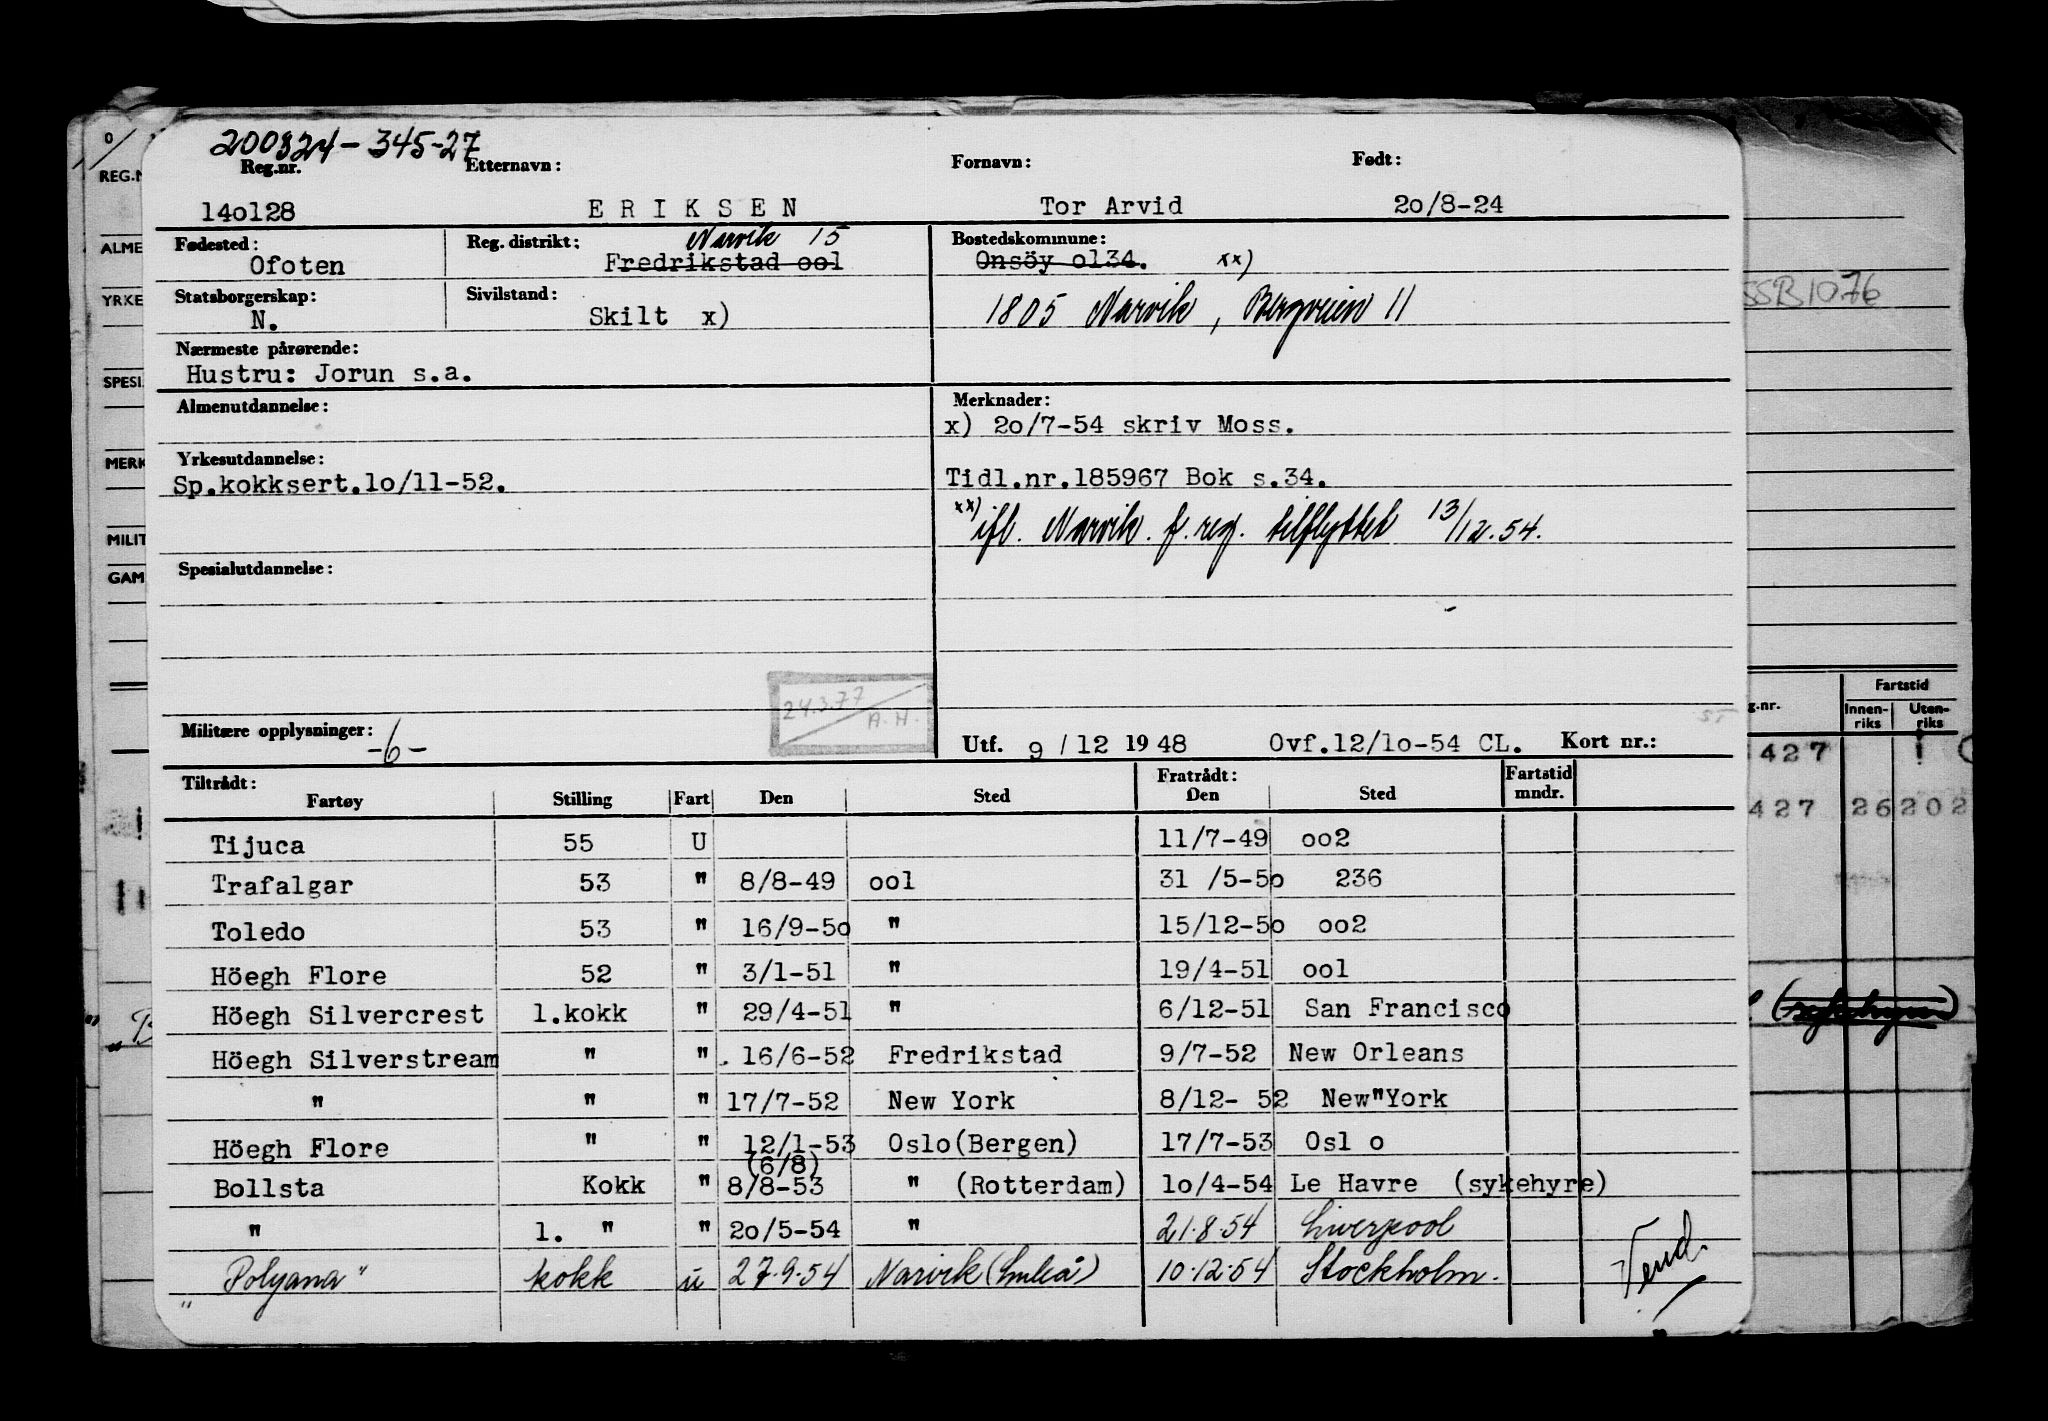 200824-345-27
Reg.nr. Etternavn: Fornavn: Født:
14o128 ERIKSEN Tor Arvid 2o/8-24
Fødested: Reg. distrikt: Narvik 15 Bostedskommune:
Ofoten Fredrikstad ool Onsöy o134. xx)
Statsborgerskap: Sivilstand:
N. Skilt x) 1805 Narvik, Bergveien 11
Nærmeste pårørende:
Hustru: Jorun s.a.
Almenutdannelse: Merknader:
x) 2o/7-54 skriv Moss.
Yrkesutdannelse:
Sp.kokksert.1o/11-52. Tidl.nr.185967 Bok s.34.
xx) ifl. Narvik f. reg. tilflyttet 13/12.54.
Spesialutdannelse:
24.3.77
A.H.
Militære opplysninger: -6- Utf. 9/12 1948 Ovf.12/1o-54 CL. Kort nr.:
Tiltrådt: Fratrådt: Fartstid
Fartøy Stilling Fart Den Sted Den Sted mndr.
Tijuca 55 U 11/7-49 oo2
Trafalgar 53 " 8/8-49 ool 31 /5-5o 236
Toledo 53 " 16/9-5o " 15/12-5o oo2
Höegh Flore 52 " 3/1-51 " 19/4-51 ool
Höegh Silvercrest 1.kokk " 29/4-51 " 6/12-51 San Francisco
Höegh Silverstream " " 16/6-52 Fredrikstad 9/7-52 New Orleans
" " " 17/7-52 New York 8/12- 52 New"York
Höegh Flore " " 12/1-53 Oslo(Bergen) 17/7-53 Osl o
(6/8)
Bollsta Kokk " 8/8-53 " (Rotterdam) 1o/4-54 Le Havre (sykehyre)
" 1. " " 2o/5-54 " 21.8.54 Liverpool
"Polyana" kokk u 27.9.54 Narvik (Luleå) 10.12.54 Stockholm.
Vend.
REG.N
ALME
YRKE
SPESI
MERK
MILIT
GAM
SSB1076
g.nr. Fartstid
Innen-riks Uten-riks
427
427 26 202